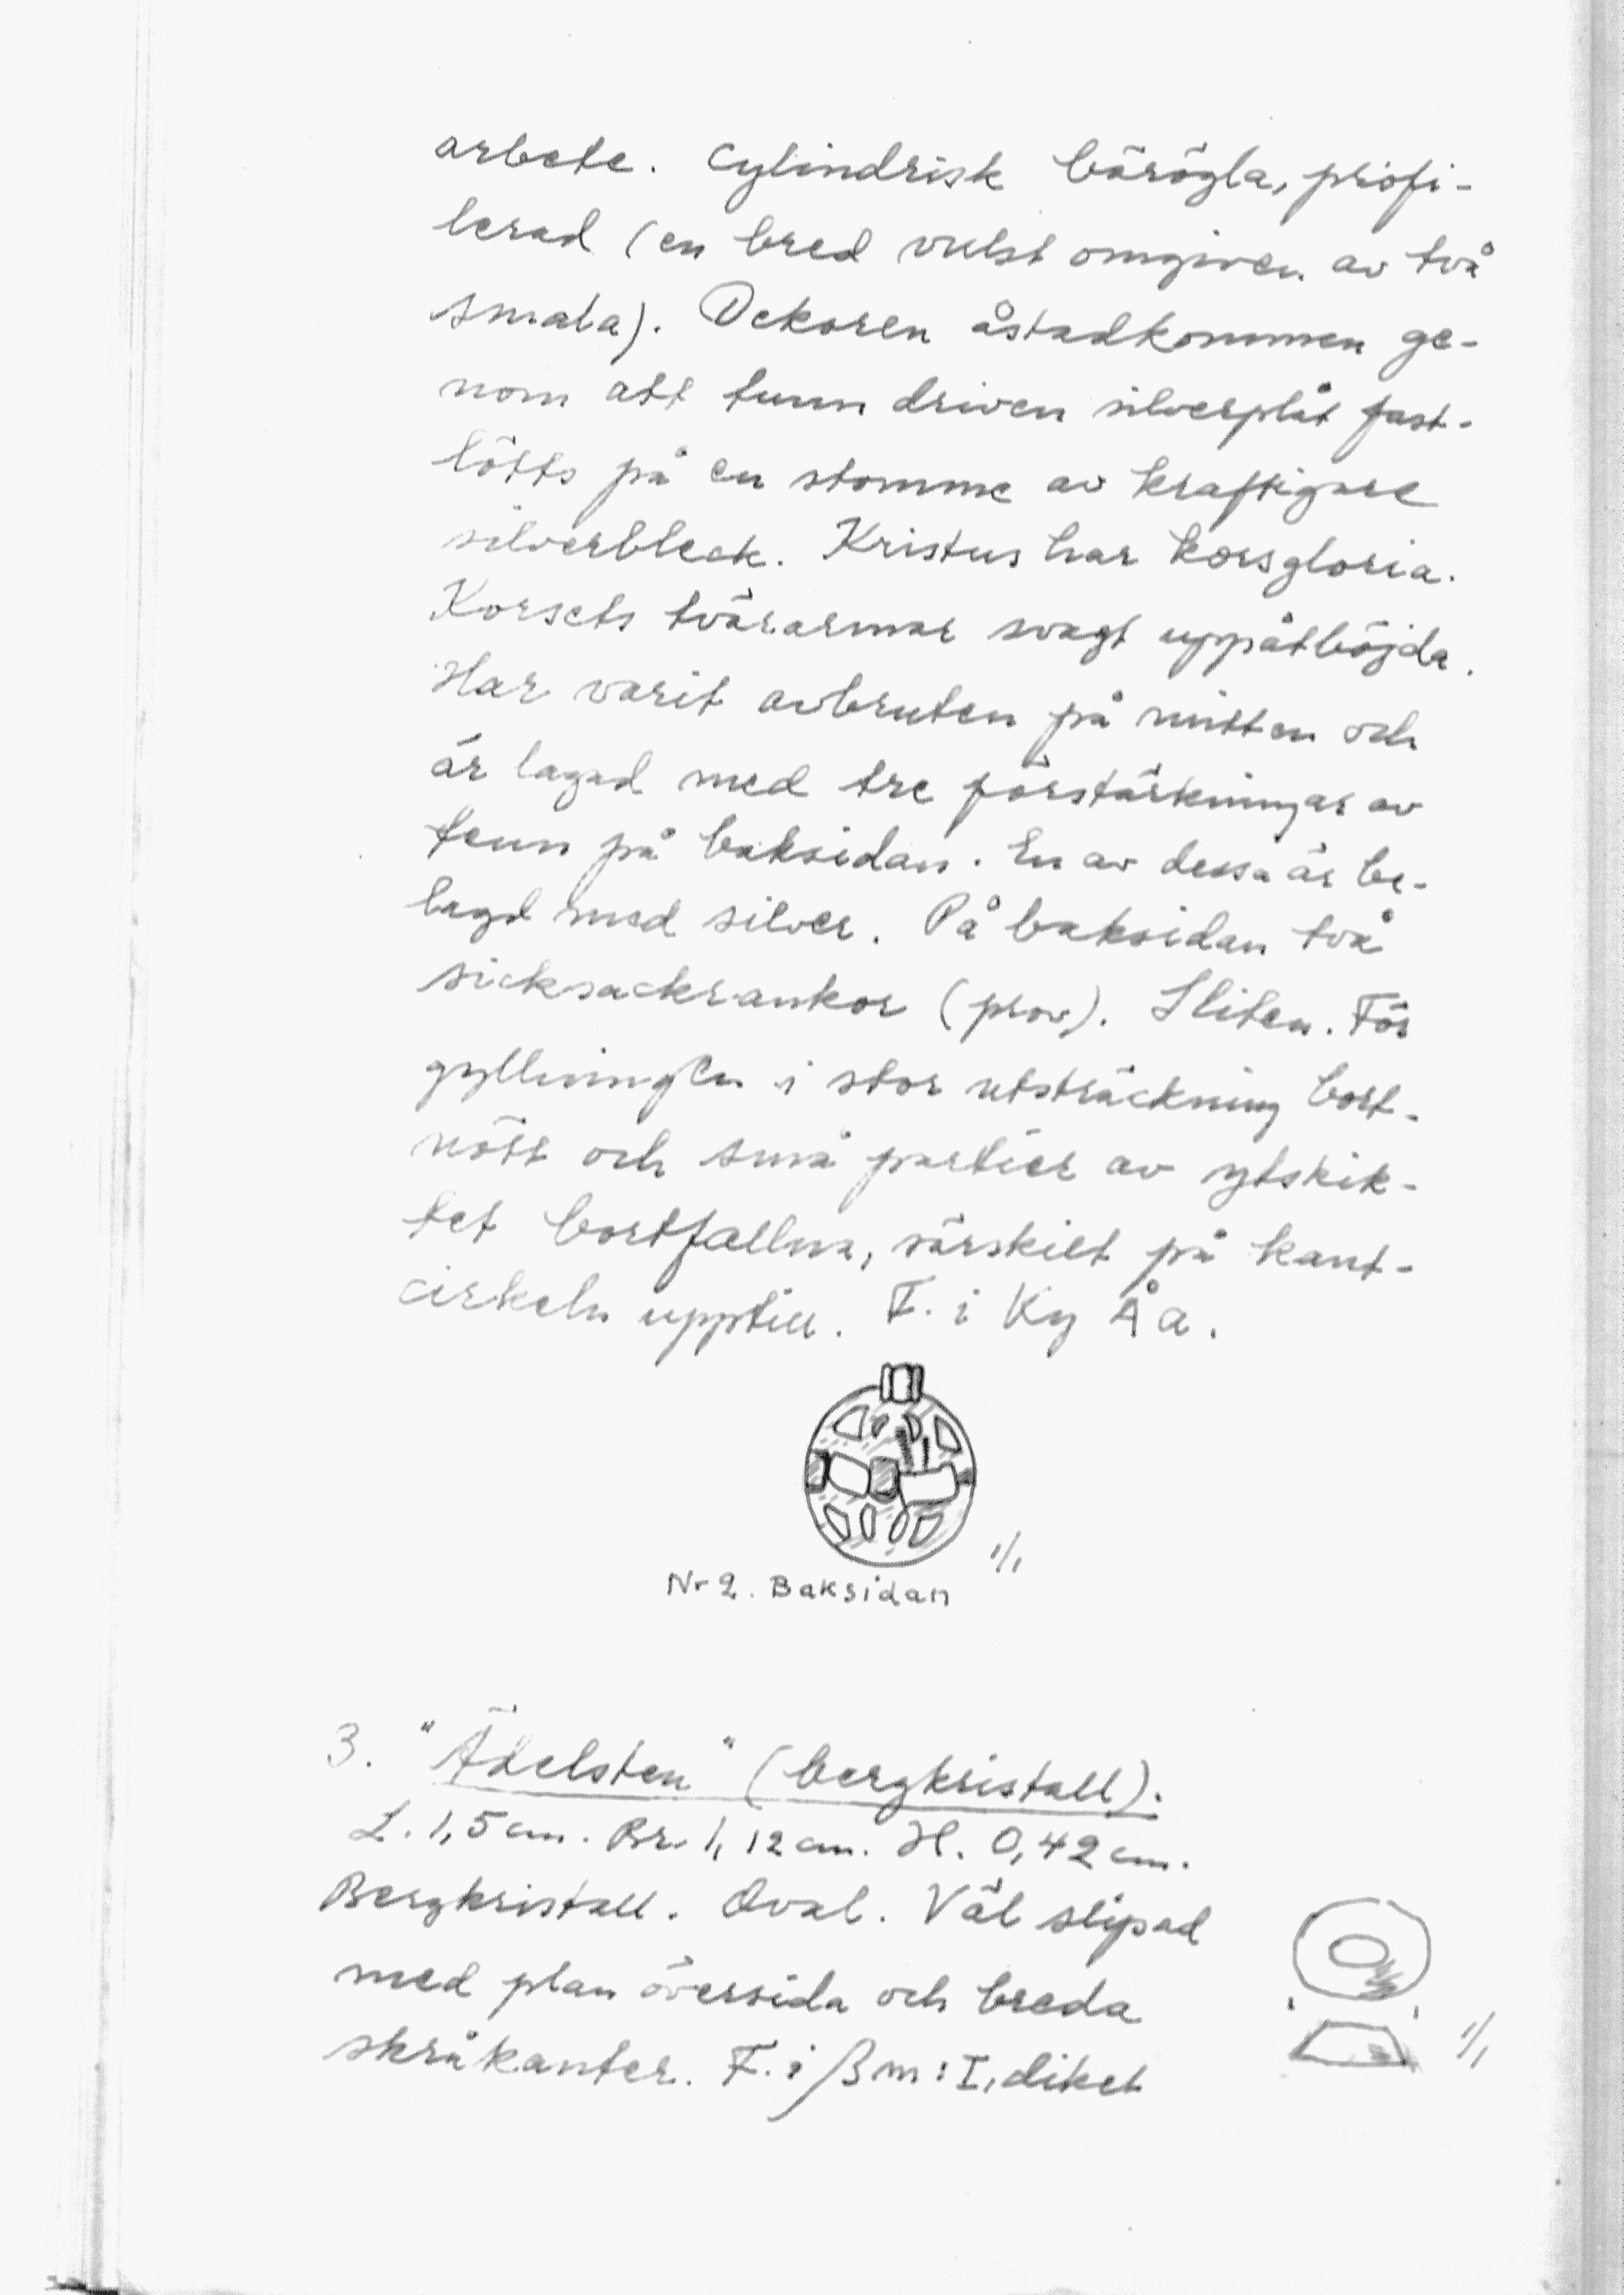 arbete. Cylindrisk bärögla, profi-
lerad (en bred vulst omgiven av två
smala). Dekoren åstadkommen ge-
nom att tunn driven silverplåt fast-
lötts på en stomme av kraftigare
silverbleck. Kristus har korsgloria.
Korsets tvärarmar svagt uppåtböjda.
Har varit avbruten på mitten och
är lagad med tre förstärkningar av
tenn på baksidan. En av dessa är be-
lagd med silver. På baksidan två
sicksackrankor (prov). Sliten. För
gyllningen i stor utsträckning bort-
nött och små partier av ytskik-
tet bortfallna, särskilt på kant-
cirkeln upptill. F. i Ky Åa.
1/1
Nr 2. Baksidan
3. "Ädelsten" (bergkristall).
L. 1,5 cm. Br. 1,12 cm. H. 0,42 cm.
Bergkristall. Oval. Väl slipad
med plan översida och breda
skråkanter. F. i ßm: I, diket
1/1